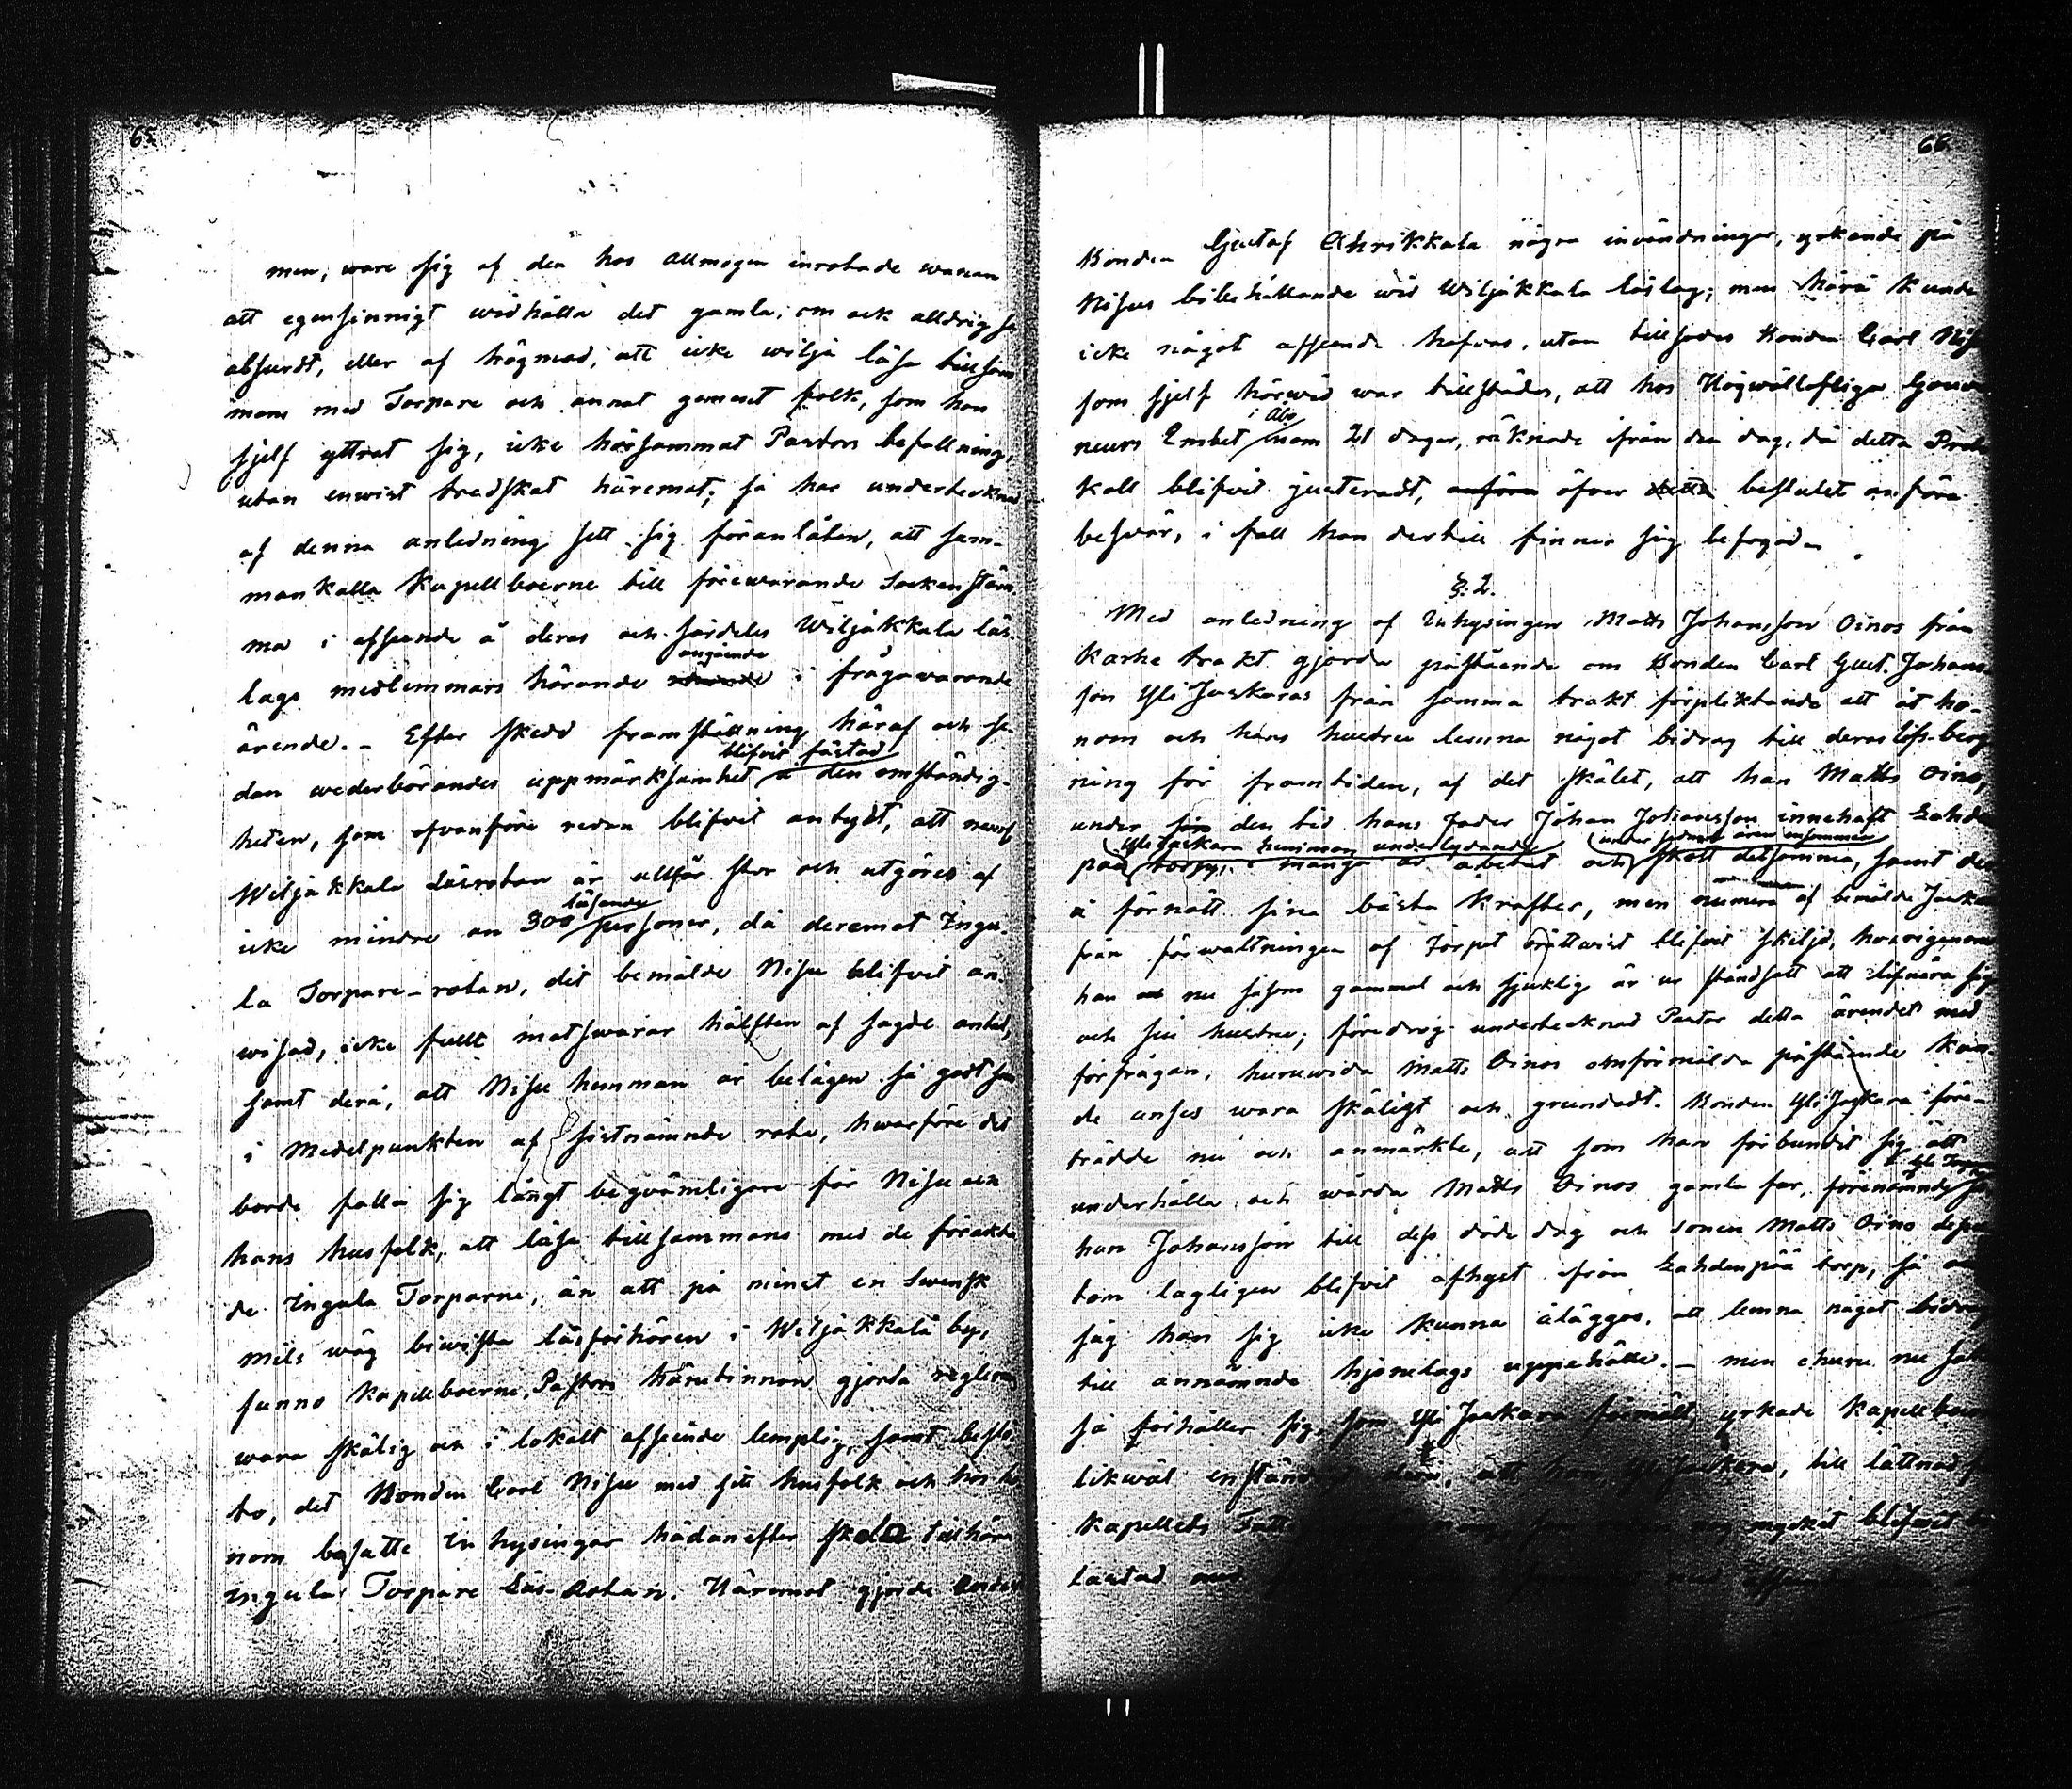 65
men, ware sig af den hos allmogen inrotade wanan
att egensinnigt widhålla det gamla, om ock alldrig så
absurdt, eller af högmod, att icke wilja läsa tillsam
mans med Torpare och annat gement folk, som han
sjelf yttrat sig, icke hörsammat Pastors befallning,
utan enwist tredskat häremot; så har undertecknad
af denna anledning sett sig föranlåten, att sam-
mankalla Kapellboerne till förewarande Sockenstäm
ma i afseende å deras och särdeles Wiljakkala läs
angående
lags medlemmars hörande i frågawarande
ärende. - Efter skedd framställning häraf och se-
blifvit fästad
dan wederbörandes uppmärksamhet å den omständig-
heten, som ofvanföre redan blifvit antydt, att
Wiljakkala Läsrotan är alltför stor och utgöres af
läsande
icke mindre än 300 personer, då deremot Ingu
la Torpare-rotan, dit bemälde Nisu blifvit an-
wisad, icke fullt motswarar hälften af sagde antal,
samt derå, att Nisu hemman är belägen så godt som
i Medelpunkten af sistnämnde rote, hwarföre det
borde falla sig långt beqvämligare för Nisu och
hans husfolk, att läsa tillsammans med de förakta
de Ingula Torparne, än att på minst en Swensk
Mils wäg biwista läsförhören i Wiljakkala by,
funno Kapellboerne, Pastors härutinnan gjorda reglering
wara skälig och i lokalt afseende lemplig, samt beslö
to, det Bonden Carl Nisu med sitt husfolk och hos ho
nom besutte Inhysingar hädanefter skola tillhöra
Ingula Torpare Läs-Rotan. Häremot gjorde
66
Bonden Gustaf Ahrikkala några invändningar, yrkande på
Nisus bibehållande wid Wiljakkala läslag; men härå kunde
icke något afseende hafvas, utan tillsades Bonden Carl Nisu
som sjelf härwid war tillstädes, att hos Högwällofliga Gouver
i Åbo
neurs Embet inom 21 dagar, räknade ifrån den dag, då detta Proto
koll blifvit justeradt, anföra öfver detta beslutet anföra
besvär, i fall han dertill finner sig befogad.
§. 2.
Med anledning af Inhysingen Matts Johansson Oinos från
Karhe trakt gjorda påstående om Bonden Carl Gust. Johans
son Yli Jaskaras från samma trakt förpliktande att åt ho-
nom och hans hustru lemna något bidrag till deras lifs-berg
ning för framtiden, af det skälet, att han Matts Oino,
under den tid hans Fader Johan Johansson innehaft Lahden
Yli Jaskara hemman underlydande under sednare åren ensammen
pää torp, i många år arbetat och skött detsamma, samt der
å förnött sina bästa krafter, men numera af bemälde Jaska
från förwaltningen af Torpet orättwist blifvit skiljd, hwarigenom
han nu såsom gammal och sjuklig är ur ståndsatt att lifnära sig
och sin hustru; föredrog undertecknad Pastor detta ärendet med
förfrågan, huruwida Matts Oinos omförmälda påstående kun-
de anses wara skäligt och grundadt. Bonden Yli Jaskara före-
trädde nu och anmärkte, att som han förbundit sig att
underhålla och wårda Matts Oinos gamla far, förenämnde Jo
han Johansson till dess döde dag och sonen Matts Oino dessu
tom lagligen blifvit afhyst ifrån Lahdenpää torp, så
såg han sig icke kunna åläggas, att lemna något bidrag
till annämnde hjonelags uppehälle. - Men ehuru nu
så förhåller sig, som Yli Jaskara förmält, yrkade Kapellboerne
likwäl att han, Yli Jaskara, till lättnad
Kapellets mycket blifvit
lastad